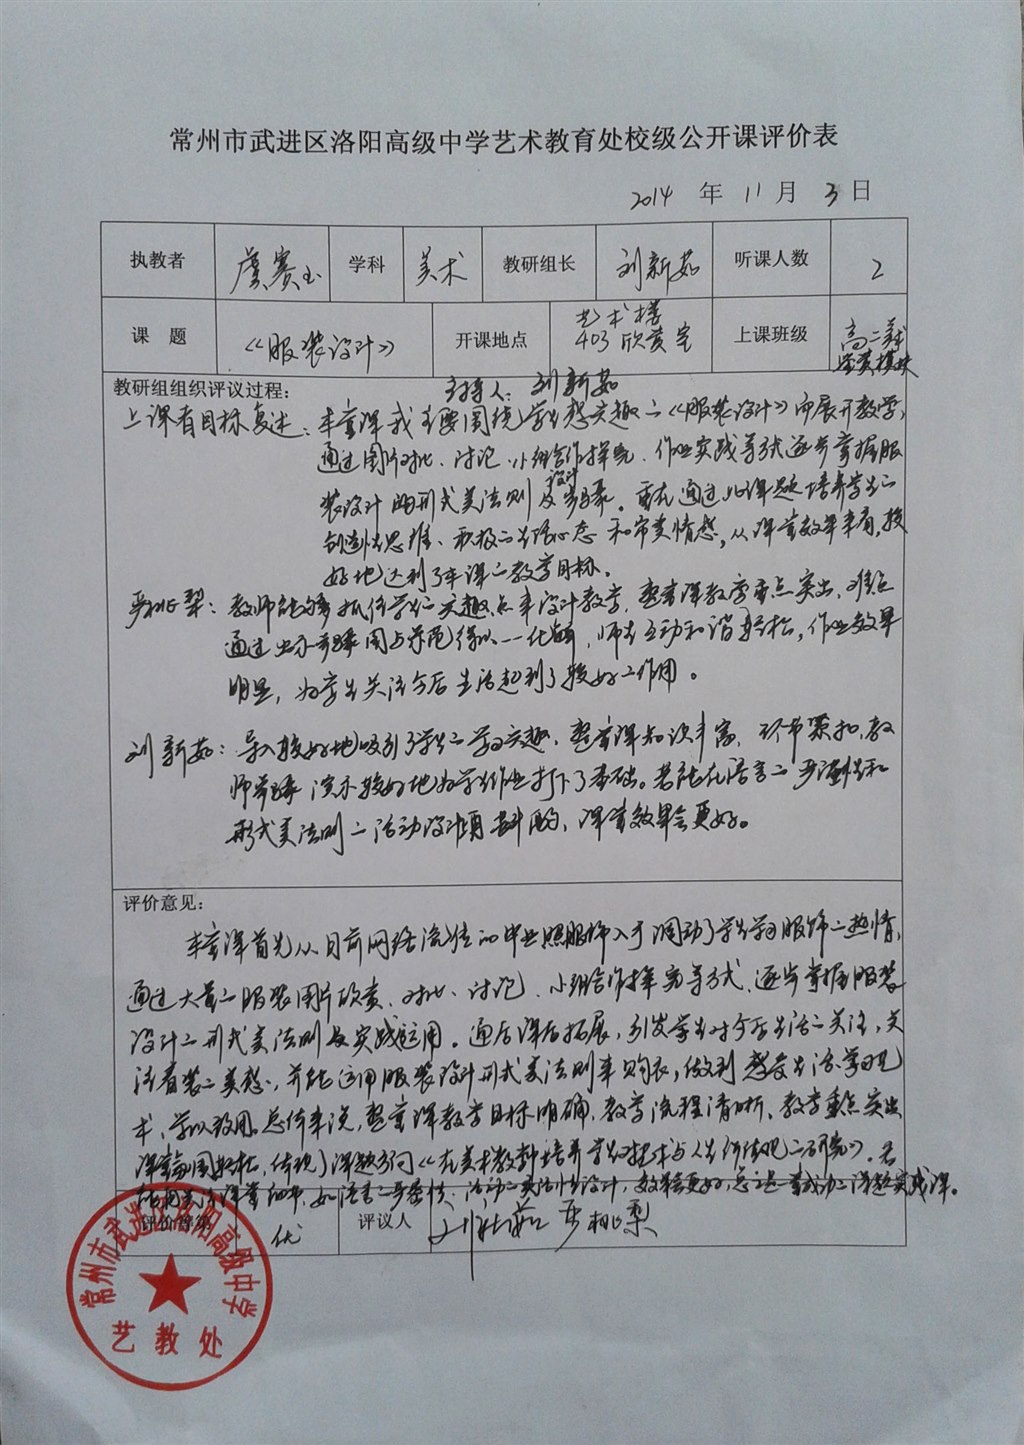 常州市武进区洛阳高级中学艺术教育处校级公开课评价表
2014 年 11 月 3 日
执教者 虞赛玉 学科 美术 教研组长 刘新茹 听课人数 2
课 题 《服装设计》 开课地点 艺术楼 403 欣赏室 上课班级 高二美术 鉴赏模块
教研组组织评议过程： 主持人：刘新茹
上课者目标复述：本堂课我主要围绕学生感兴趣的《服装设计》而展开教学，
通过图片对比、讨论、小组合作探究、作业实践等形式逐步掌握服
装设计的形式美法则及设计步骤。重在通过此课题培养学生的
创造性思维、积极的生活心态和审美情感，从课堂效果来看，较
好地达到了本课的教学目标。
梨：教师能够抓住学生兴趣点来设计教学，整堂课教学重点突出，难点
通过出示步骤图与示范得以一一化解，师生互动和谐轻松，作业效果
明显，为学生关注今后生活起到了较好的作用。
刘新茹：导入较好地吸引了学生的学习兴趣，整堂课知识丰富，环节紧扣，教
师步骤演示较好地为学生作业打下了基础。若能在语言的严谨性和
形式美法则的活动设计頃斟酌，课堂效果会更好。
评价意见：
本堂课首先从目前网络流传的毕业照服饰入手调动了学生学习服饰的热情，
通过大量的服装图片欣赏、对比、讨论、小组合作探究等方式，逐步掌握服装
设计的形式美法则及实践运用。通过课后拓展，引发学生对今后生活的关注，关
注着装的美感，并能运用服装设计形式美法则来购衣，做到感受生活学习艺
术、学以致用。总体来说，整堂课教学目标明确，教学流程清晰、教学重点突出
课堂氛围轻松，体现了课题专问《在美术教学中培养学生对艺术与人生价值观的研究》。若
能关注课堂细节，如语言的严谨性、活动的实活性设计，效果会更好，总之是一堂成功的课题实践课。
评价等第 优 评议人 刘新茹 桃梨
常州市武进区洛阳高级中学
艺教处